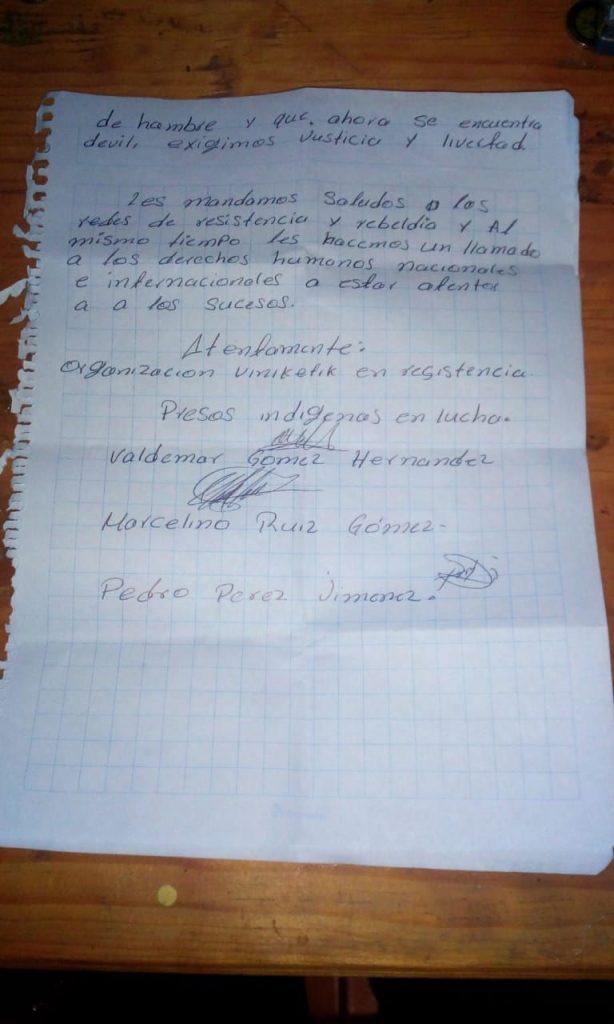 de hambre y que, ahora se encuentra
devil, exigimos Justicia y livertad.
Les mandamos Saludos a los
redes de resistencia y rebeldia y Al
mismo tiempo les hacemos un llamado
a los derechos humanos nacionales
e internacionales a estar atentos
a a los sucesos.
Atentamente:
Organizacion viniketik en resistencia.
Presos indigenas en lucha.
Valdemar Gomez Hernandez
Marcelino Ruiz Gómez.
Pedro Perez Jimenez.